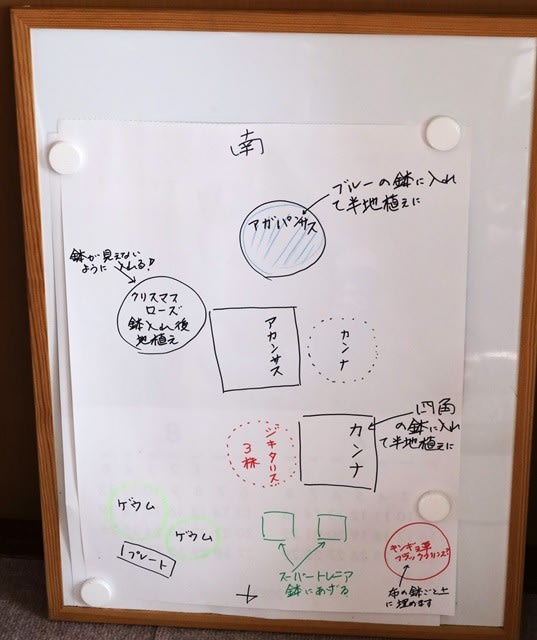 南
ブルーの鉢に入れ
て半地植えに
アガパンサス
鉢が見えない
ように入れる!
クリスマス
ローズ
鉢入れ後
地植え
アカンサス
カンナ
四角
の鉢に入れ
て半地植えに
カンナ
ジキタリス
3株
ゲウム
ゲウム
プレート
スーパートレニア
鉢にあげる
キンギョ草
布の鉢ごと土
に埋めます